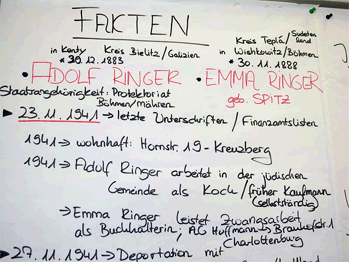 FAKTEN
in Kenty Kreis Bielitz/Galizien
* 30.12.1883
Kreis Tepla/Sudeten
land
in Wishkowitz/Böhmen
* 30.11.1888
• ADOLF RINGER
• EMMA RINGER
geb. SPITZ
Staatsangehörigkeit: Protektoriat
Böhmen/Mähren
► 23.11.1941 → letzte Unterschriften / Finanzamtslisten
1941 → wohnhaft: Hornstr. 19 - Kreuzberg
1941 → Adolf Ringer arbeitet in der jüdischen
Gemeinde als Koch/früher Kaufmann
(selbstständig)
⇒ Emma Ringer leistet Zwangsarbeit
als Buchhalterin; AG Hoffmann → Brauhofstr. 1
Charlottenburg
► 27.11.1941 → Deportation mit